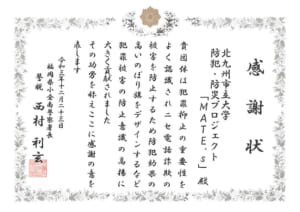 感謝状
北九州市立大学
防犯・防災プロジェクト
「MATE's」殿
貴団体は犯罪抑止の重要性を
よく認識されニセ電話詐欺の
被害を防止するため防犯効果の
高いのぼり旗をデザインするなど
犯罪被害の防止意識の高揚に
大きく貢献されました
その功労を称えここに感謝の意を
表します
令和三年十二月二十三日
福岡県小倉南警察署長
警視 西村利玄